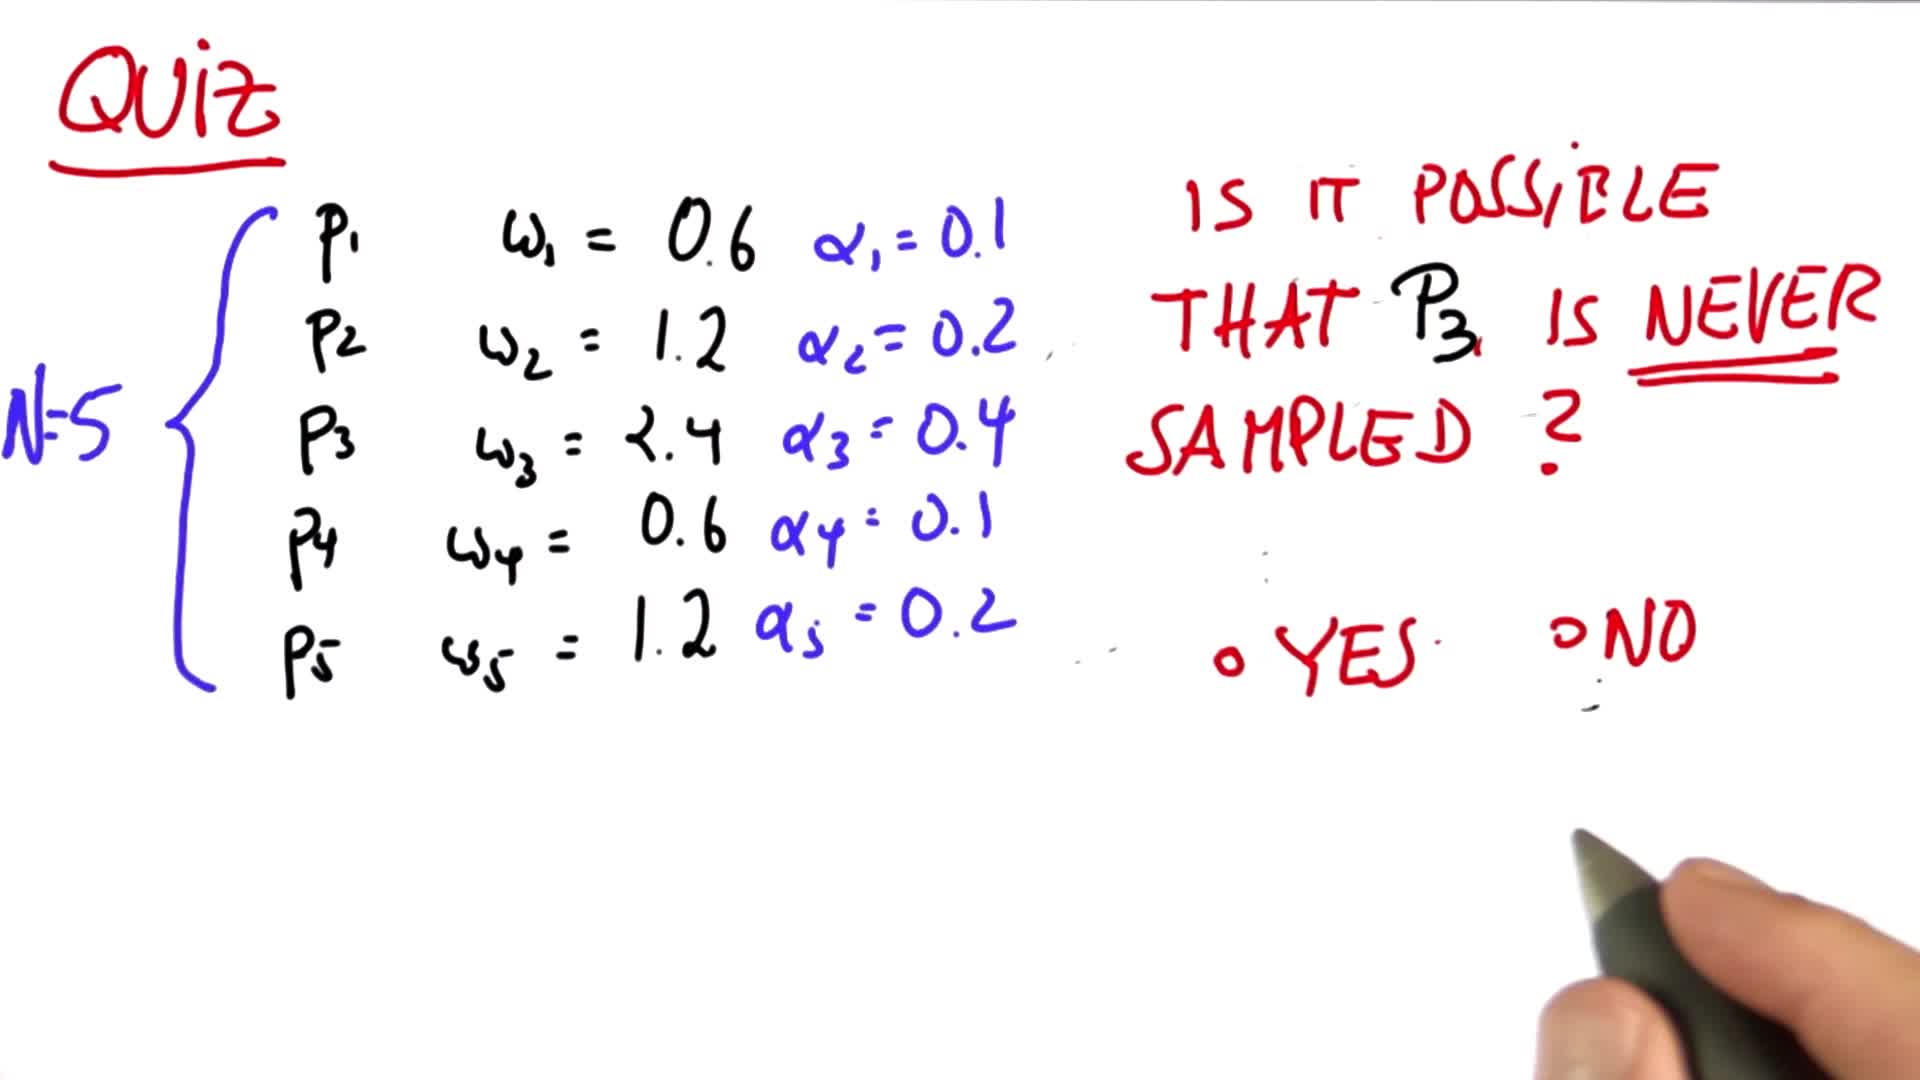 QUIZ
N=5
p1 ω1 = 0.6 α1 = 0.1
p2 ω2 = 1.2 α2 = 0.2
p3 ω3 = 2.4 α3 = 0.4
p4 ω4 = 0.6 α4 = 0.1
p5 ω5 = 1.2 α5 = 0.2
IS IT POSSIBLE
THAT P3 IS NEVER
SAMPLED ?
YES NO